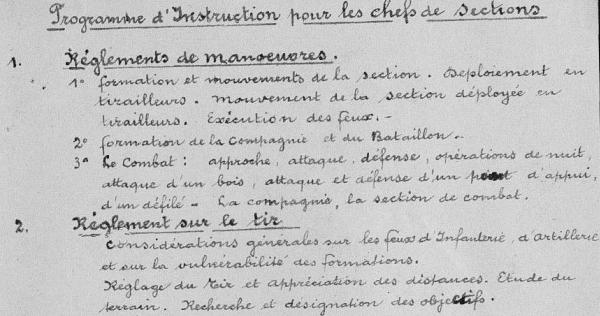 Programme d'Instruction pour les chefs de Sections
1. Réglements de manoeuvres.
1° formation et mouvements de la section. Deploiement en
tirailleurs. Mouvement de la section déployée en
tirailleurs. Exécution des feux.-
2° formation de la Compagnie et du Bataillon.-
3° Le Combat : approche, attaque, défense, opérations de nuit,
attaque d'un bois, attaque et défense d'un point d'appui,
d'un défilé - La compagnie, la section de combat.
2. Réglement sur le tir
Considérations générales sur les feux d'Infanterie, d'artillerie
et sur la vulnérabilité des formations.
Réglage du tir et appréciation des distances. Etude du
terrain. Recherche et désignation des objectifs.